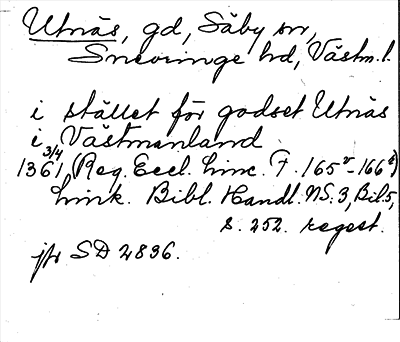 Utnäs, gd, Säby sn,
Snevringe hd, Västm.l.
i stället för godset Utnäs
i Västmanland
1361 3/4 (Reg. Eccl. Linc. F. 165v-166r)
Link. Bibl. Handl. NS. 3, Bil. 5,
s. 252. regest.
jfr SD 2836.